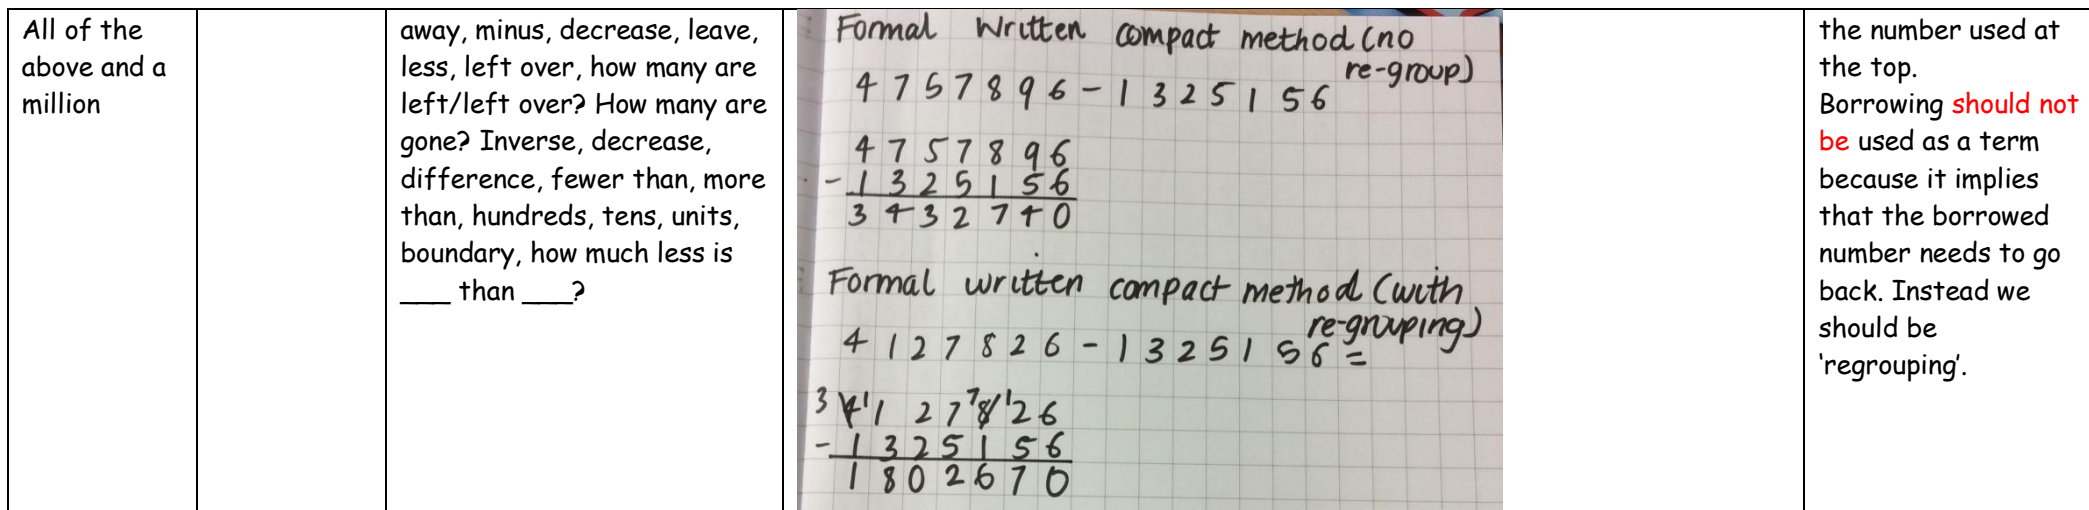 All of the
above and a
million
away, minus, decrease, leave,
less, left over, how many are
left/left over? How many are
gone? Inverse, decrease,
difference, fewer than, more
than, hundreds, tens, units,
boundary, how much less is
___ than ___?
Formal Written compact method (no
re-group)
4757896 - 1325156
4757896
- 1325156
3432740
Formal written compact method (with
re-grouping)
4127826 - 1325156 =
3 4 1 1 2 7 7 8 1 2 6
- 1325156
1802670
the number used at
the top.
Borrowing should not
be used as a term
because it implies
that the borrowed
number needs to go
back. Instead we
should be
'regrouping'.